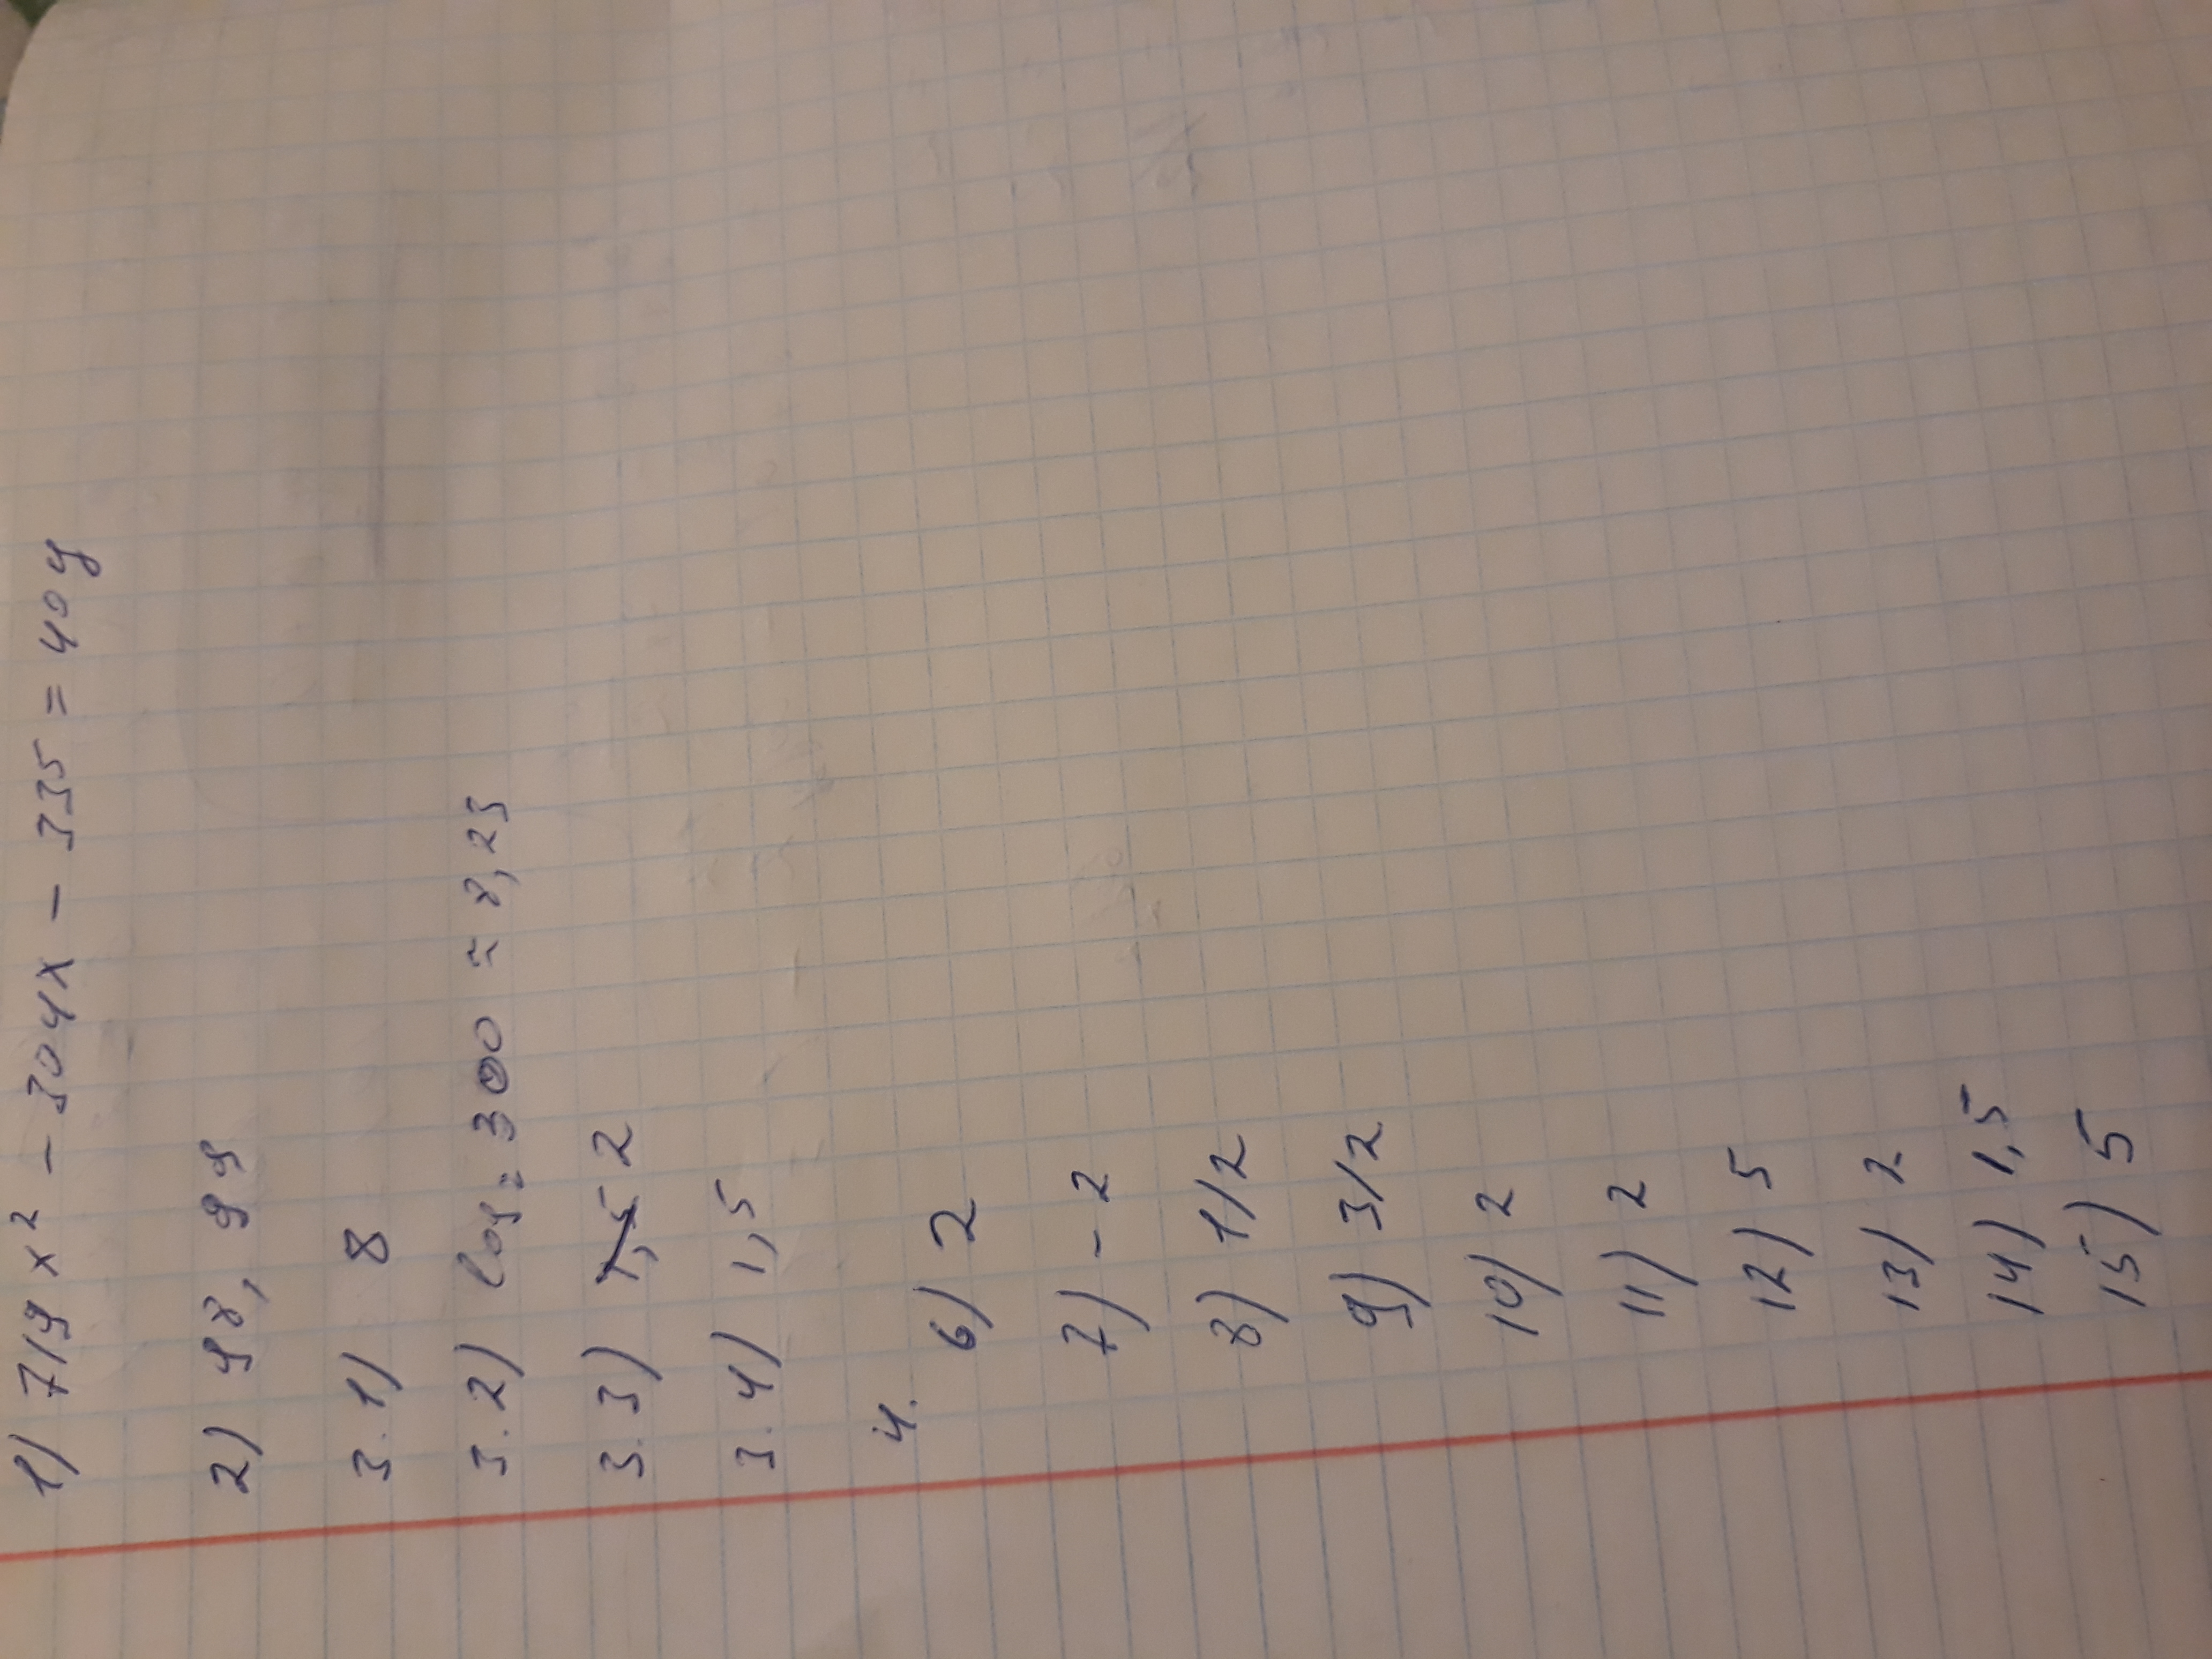 1) 719x² - 304x - 335 = 40y
2) 98, 99
3.1) 8
3.2) log₂ 300 ≈ 8,23
3.3) 1,5 2
3.4) 1,5
4.
6) 2
7) - 2
8) 1/2
9) 3/2
10) 2
11) 2
12) 5
13) 2
14) 1,5
15) 5